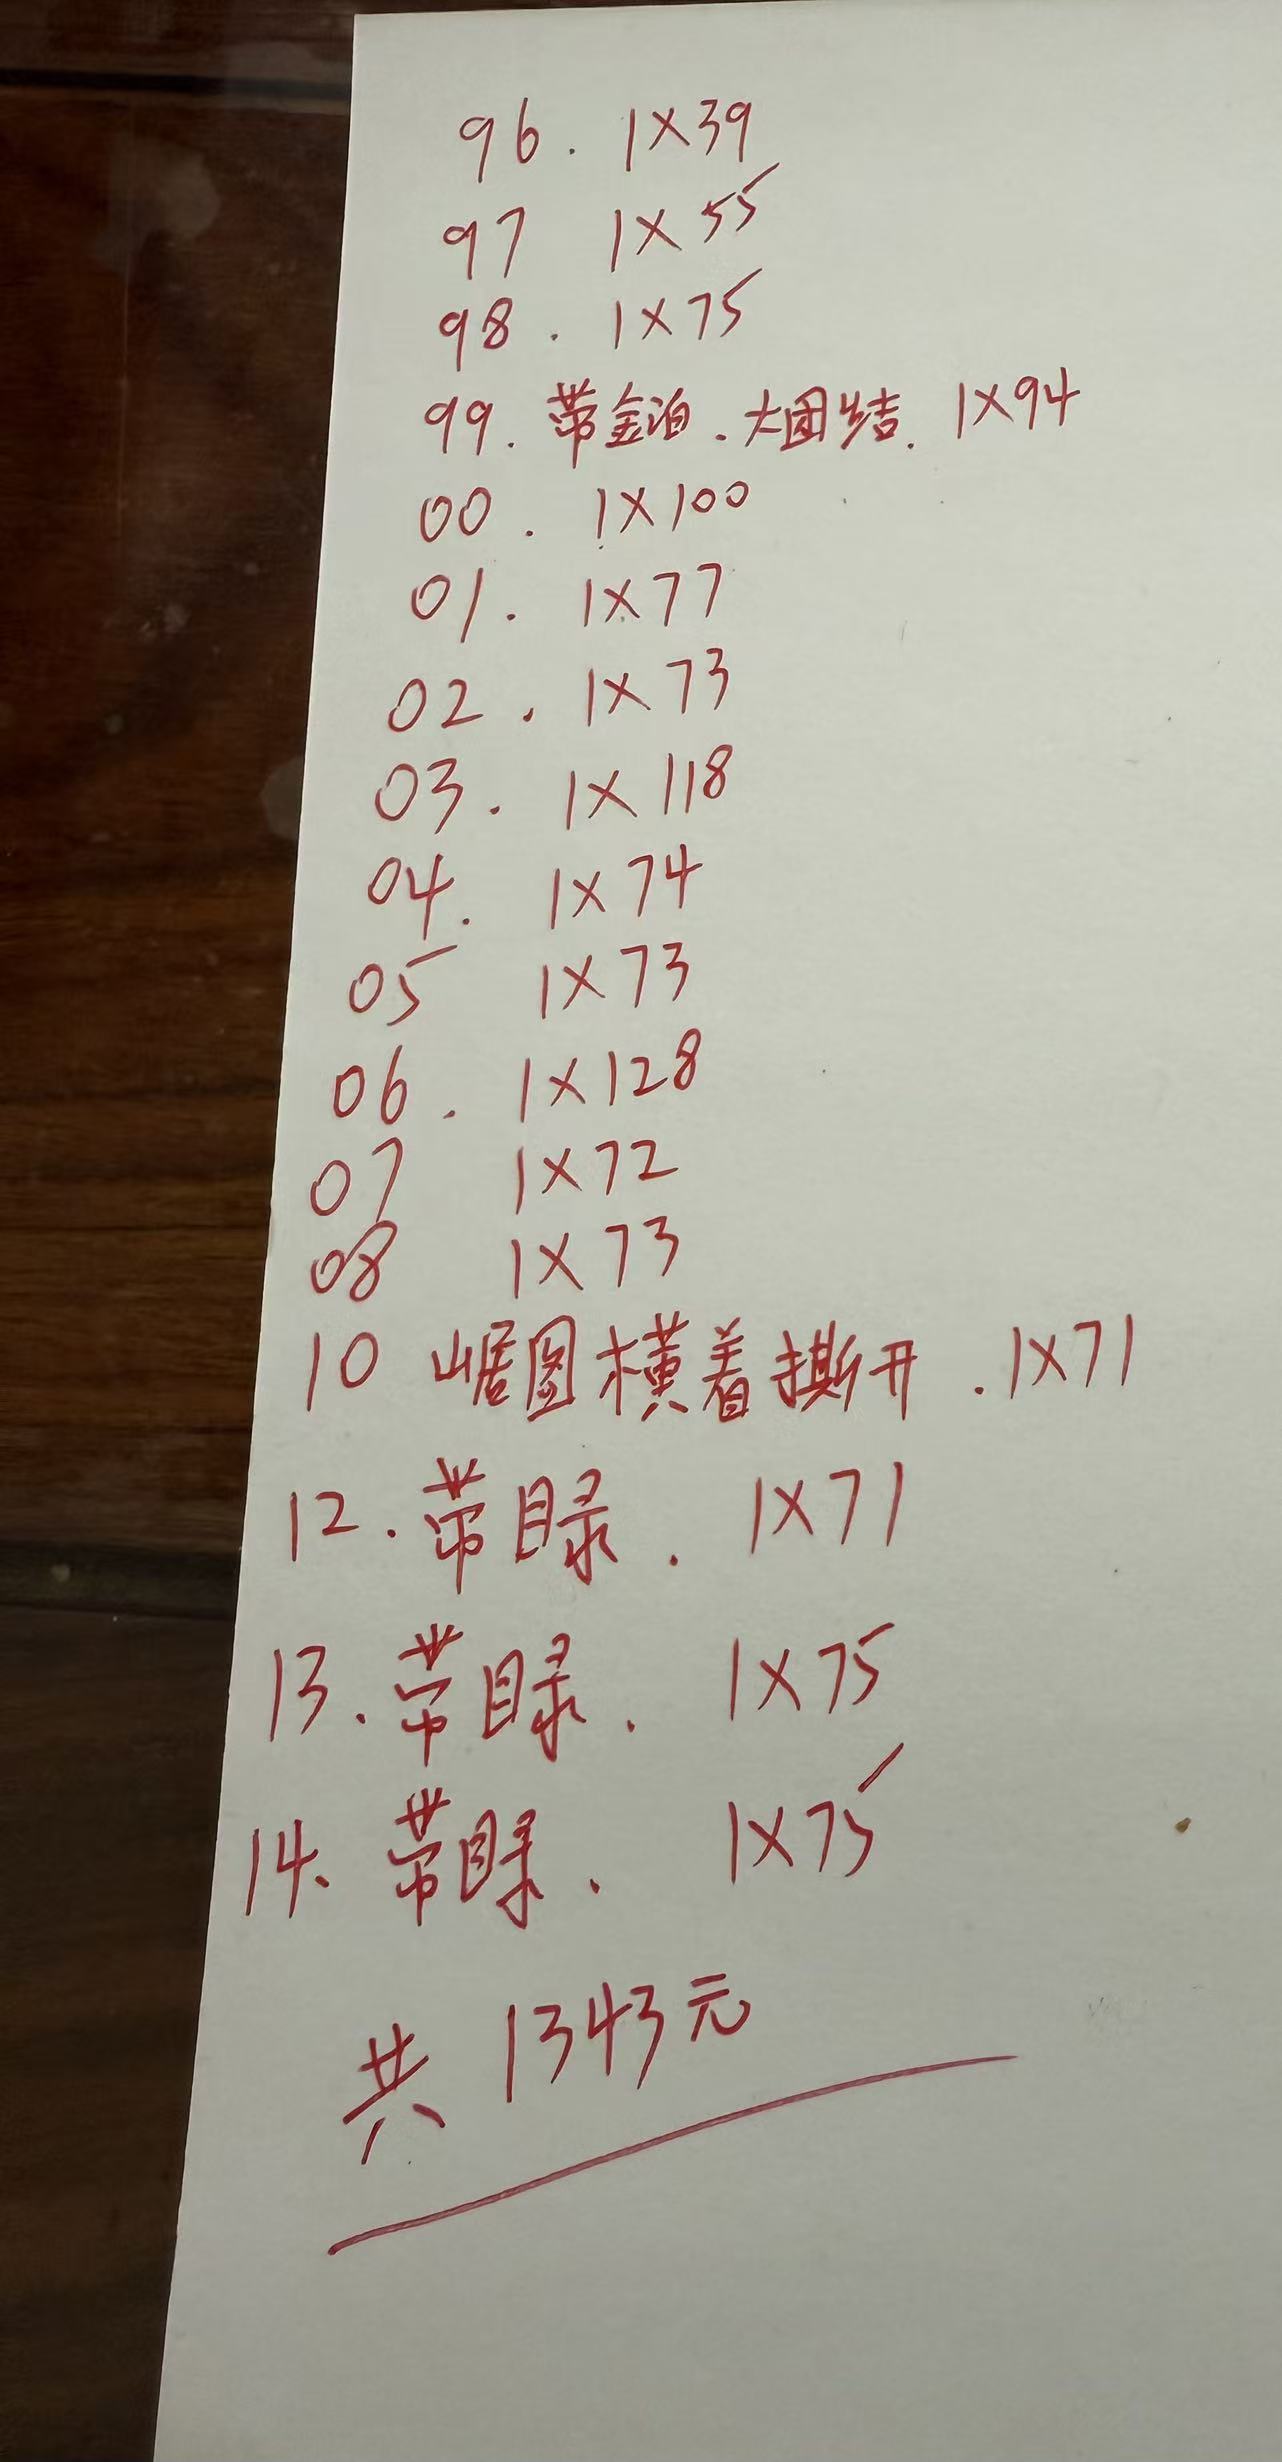 96. 1×39
97 1×55
98. 1×75
99. 带金泊. 大团结. 1×94
00. 1×100
01. 1×77
02. 1×73
03. 1×118
04. 1×74
05 1×73
06. 1×128
07 1×72
08 1×73
10 崌图横着撕开. 1×71
12. 带目录. 1×71
13. 带目录. 1×75
14. 带目录. 1×75
共 1343元